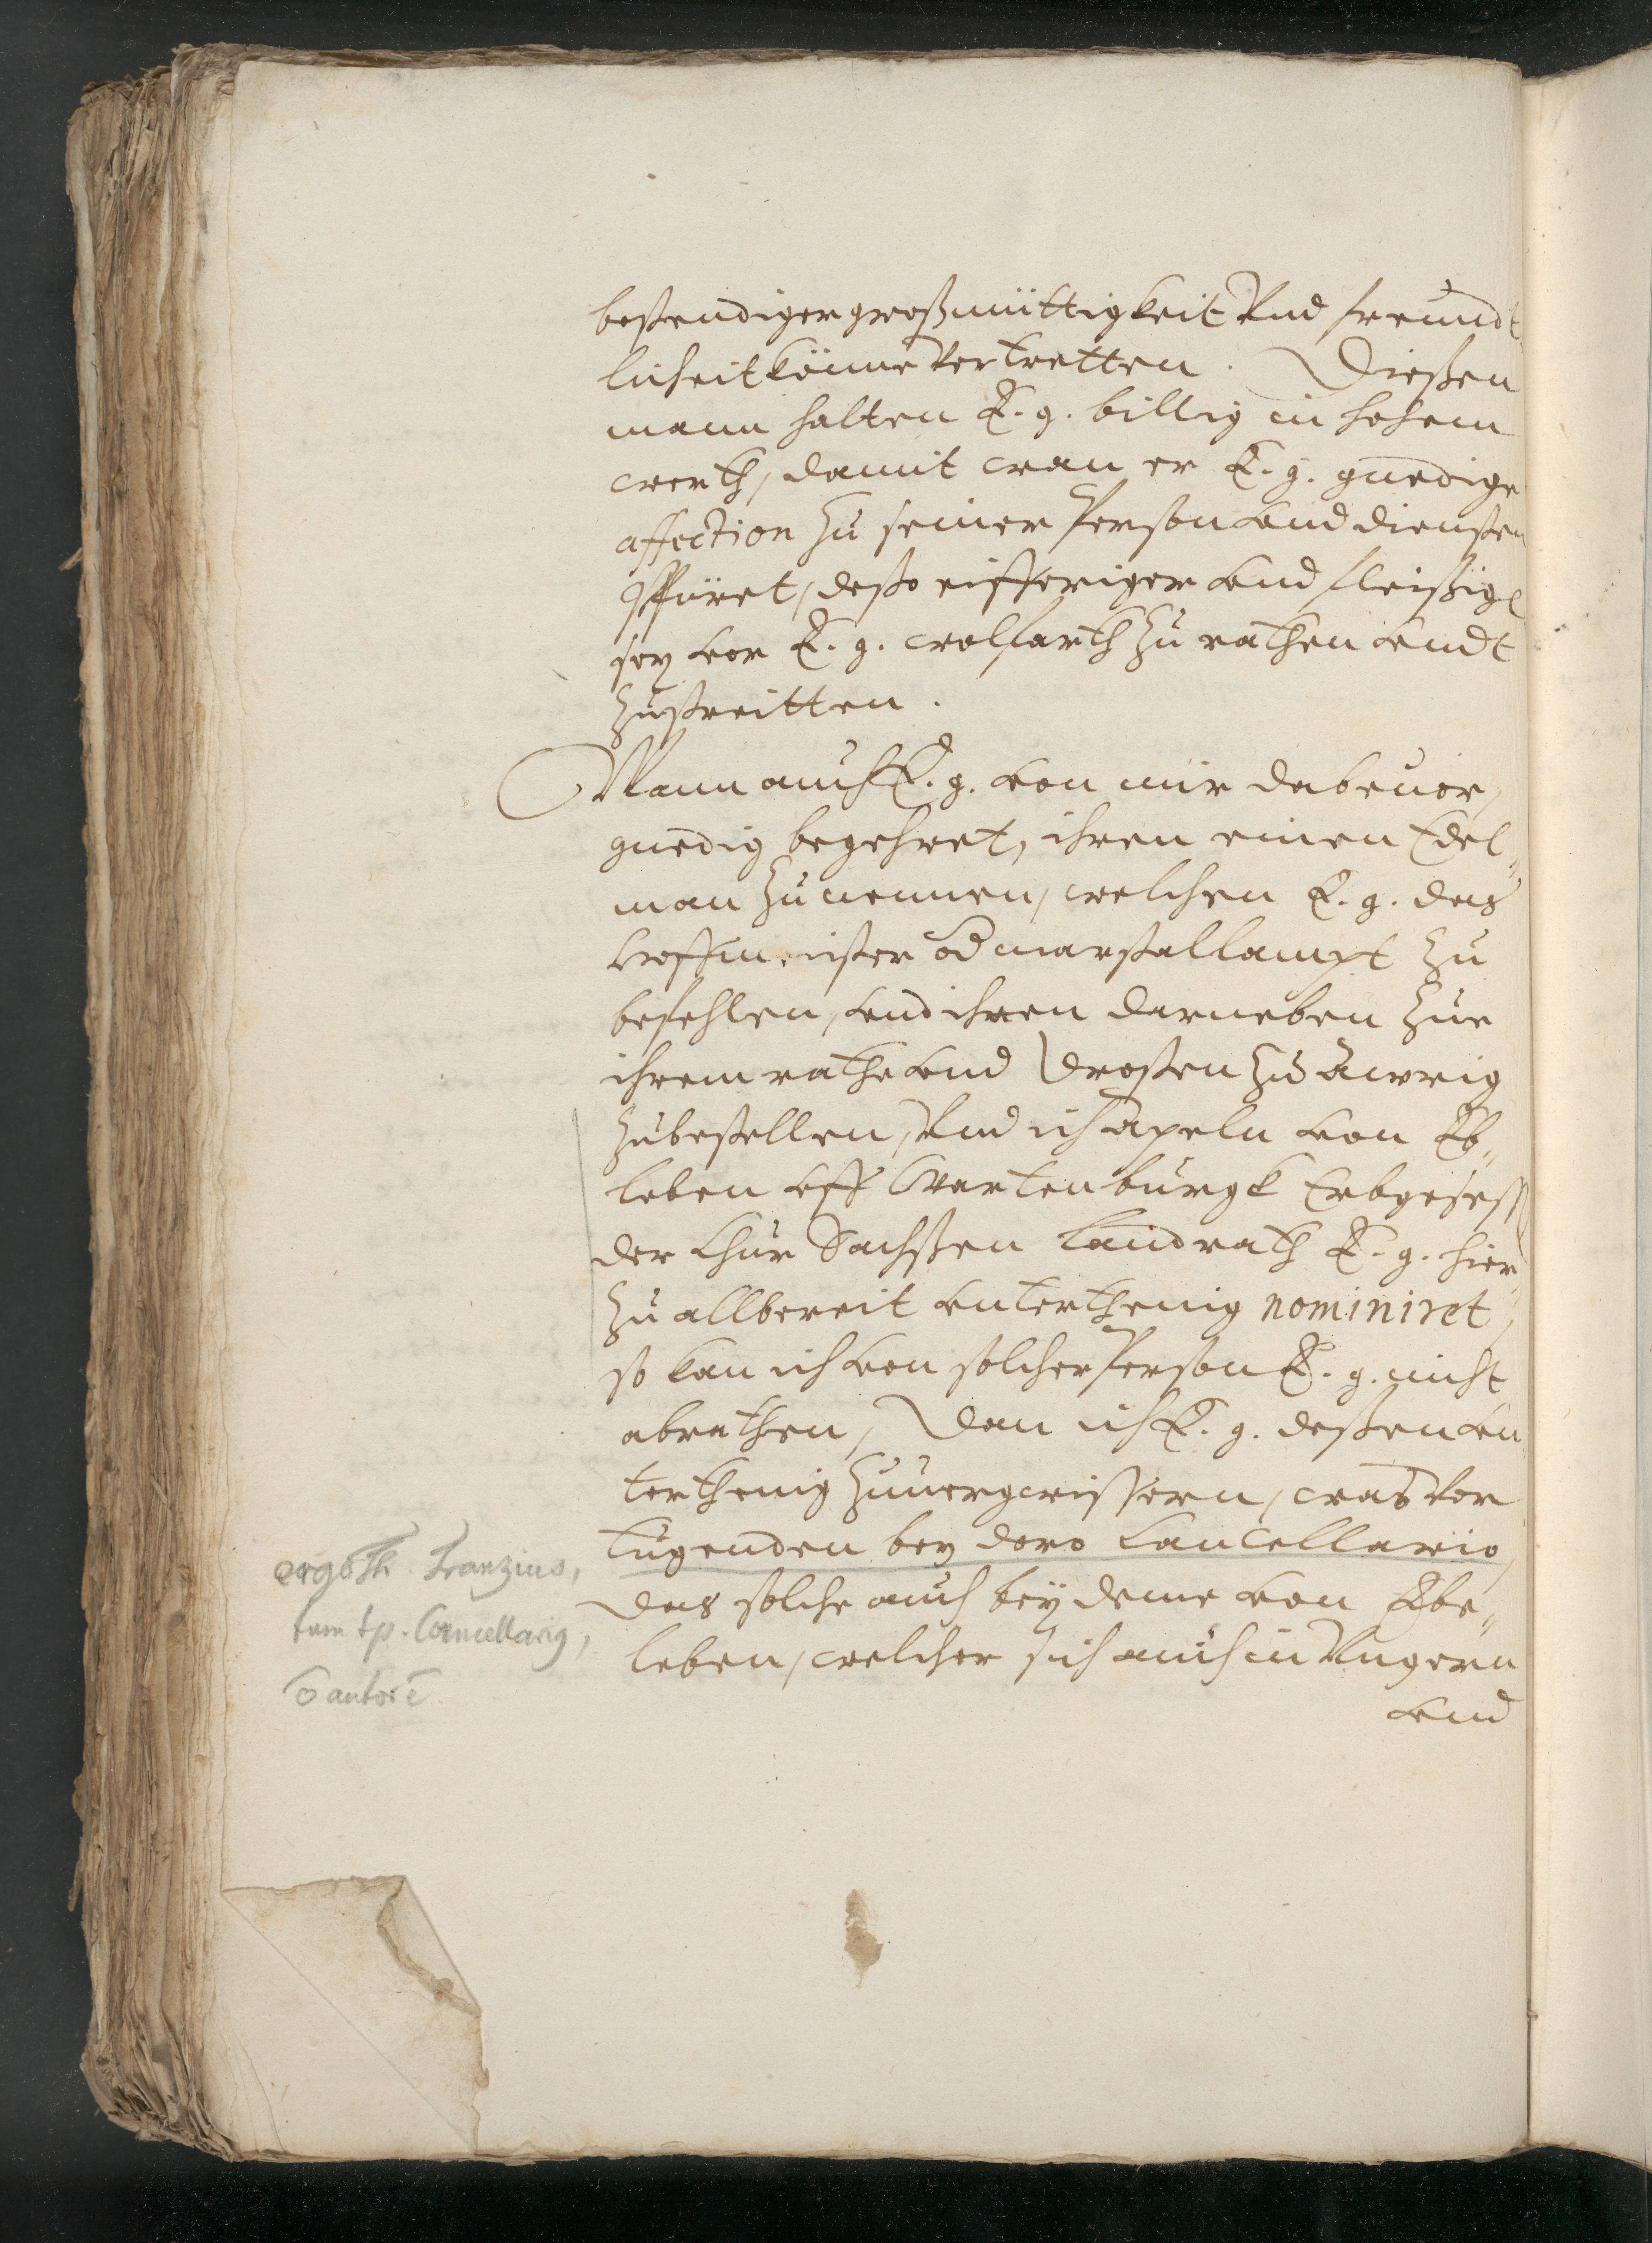 bestendiger großmüttigkeit Vnd freundt
licheit könne Vertretten. Dießen
mann halten E. g. billig in hohem
werth, damit wan er E. g. gnedige
affection zu seiner Person vnd diensten
spüret, desto eifferiger vnd fleißig
sey vor E. g. wolfarth zu rathen vndt
zustreitten.
Wann auch E. g. von mir dabeuor,
gnedig begehret, ihren einen Edel„
man zu nennen, welchen E. g. das
hoffmeister od marstallampt zu
befehlen, vnd ihren darneben zue
ihrem rathe vnd Drosten zu Awrig
zubestellen, Vnd ich Apeln von Eb„
leben vff Wartenburgk Erbgesess
der Chur Sachßen Landrath E. g. hier„
zu allbereit vnterthenig nominiret,
so kan ich von solcher Person E. g. nicht
abrathen, Dan ich E. g. deßen vn„
terthenig zuuergwissern, was vor
tugenden bey dero Cancellario,
das solche auch bey deme von Ebe„
leben, welcher sich auch in Vngern
vnd
ergo Th. Franzius,
tum tp. Cancellarig,
autor ē